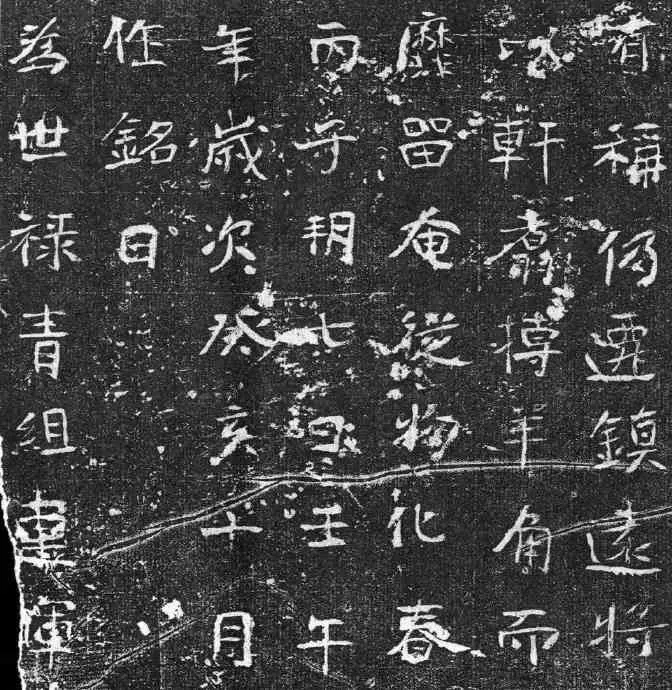 稱仍遷鎮遠將
軒翥摶羊角而
靡留奄從物化春
丙子朔七日壬午
年歲次癸亥十月
作銘曰
為世禄青組暉